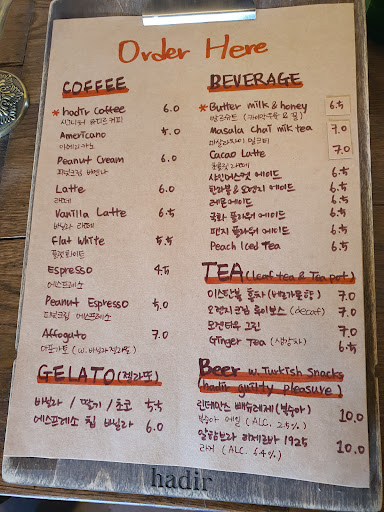 Order Here
COFFEE
* hadir coffee 6.0
시그니처 하디르커피
Americano 5.0
아메리카노
Peanut Cream 6.0
Latte 6.0
라떼
Vanilla Latte 6.5
바닐라 라떼
Flat White 5.5
플랫화이트
Espresso 4.5
에스프레소
Peanut Espresso 5.0
피넛크림 에스프레소
Affogato 7.0
아포가토 (w. 바닐라젤라또)
GELATO (젤라또)
바닐라 / 딸기 / 초코 5.5
에스프레소 칩 바닐라 6.0
BEVERAGE
* Butter milk & honey 6.5
Masala Chai milk tea 7.0
마살라짜이 밀크티
Cacao Latte 7.0
샤인머스켓 에이드 6.5
한라봉 & 오렌지 에이드 6.5
레몬에이드 6.5
국화 플라워 에이드 6.5
팬지 플라워 에이드 6.5
Peach Iced Tea 6.5
TEA (leaf tea & Tea pot)
이스탄불 홍차 (베르가못향) 7.0
오렌지크림 루이보스 (decaf) 7.0
모겐타우 그린 7.0
Ginger Tea (생강차) 6.5
Beer w. Turkish Snacks
(hadir guilty pleasure)
린데만스 뻬슈레제 (복숭아) 10.0
복숭아 에일 (ALC. 2.5%)
알함브라 리제르바 1925 10.0
라거 (ALC. 6.4%)
hadir